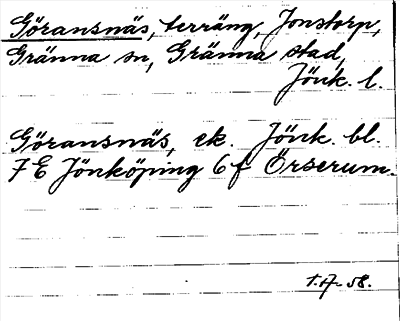 Göransnäs, terräng, Jonstorp,
Gränna sn, Gränna stad,
Jönk. l.
Göransnäs, ek. Jönk. bl.
7 E Jönköping 6 f Örserum.
58.